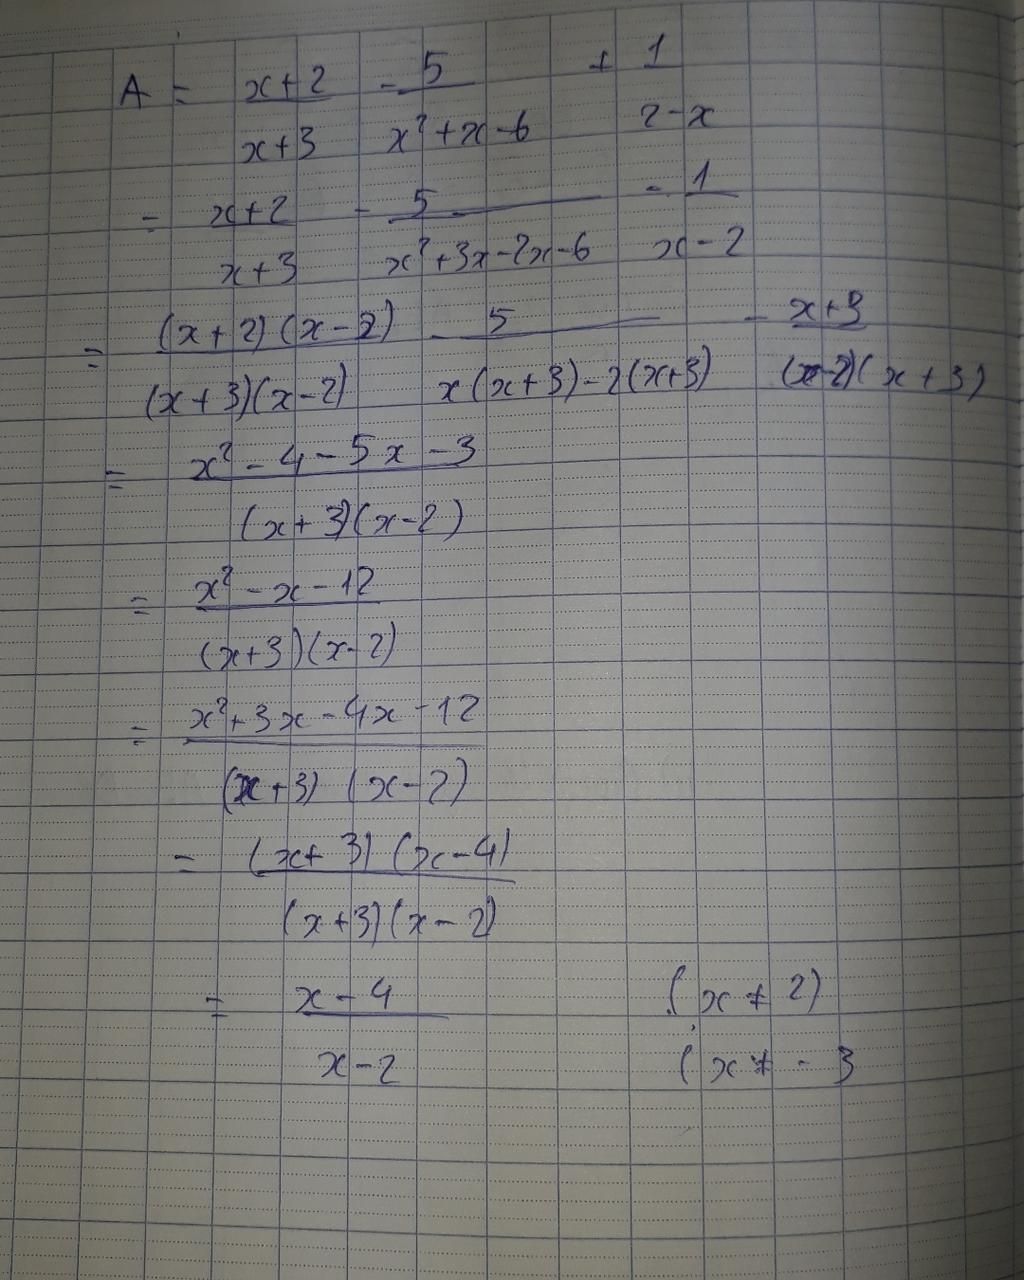 A = x+2 - 5 + 1
x+3 x²+x-6 2-x
= x+2 - 5 - 1
x+3 x²+3x-2x-6 x-2
= (x+2)(x-2) - 5 - x+3
(x+3)(x-2) x(x+3)-2(x+3) (x-2)(x+3)
= x²-4-5x-3
(x+3)(x-2)
= x²-x-12
(x+3)(x-2)
= x²+3x-4x-12
(x+3) (x-2)
= (x+3) (x-4)
(x+3)(x-2)
= x-4 (x ≠ 2)
x-2 (x ≠ -3